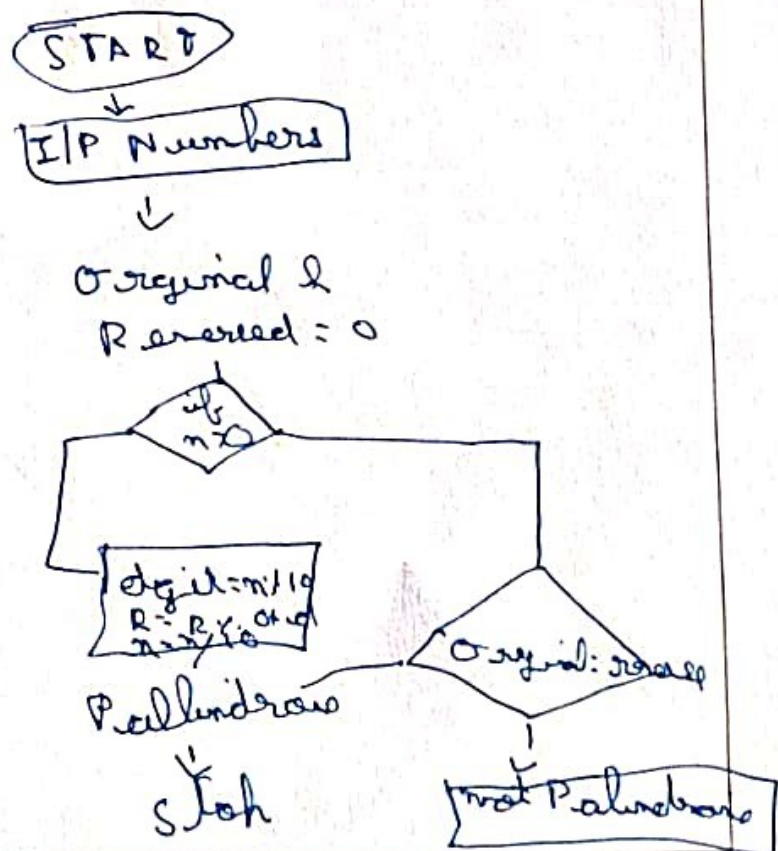 START
I/P Numbers
Orginal &
Reversed = 0
if
n>0
digit = n%10
R = R × 10 + d
n = n/10
Orginal = reverse
Pallindrom
stoh
not Palindrome